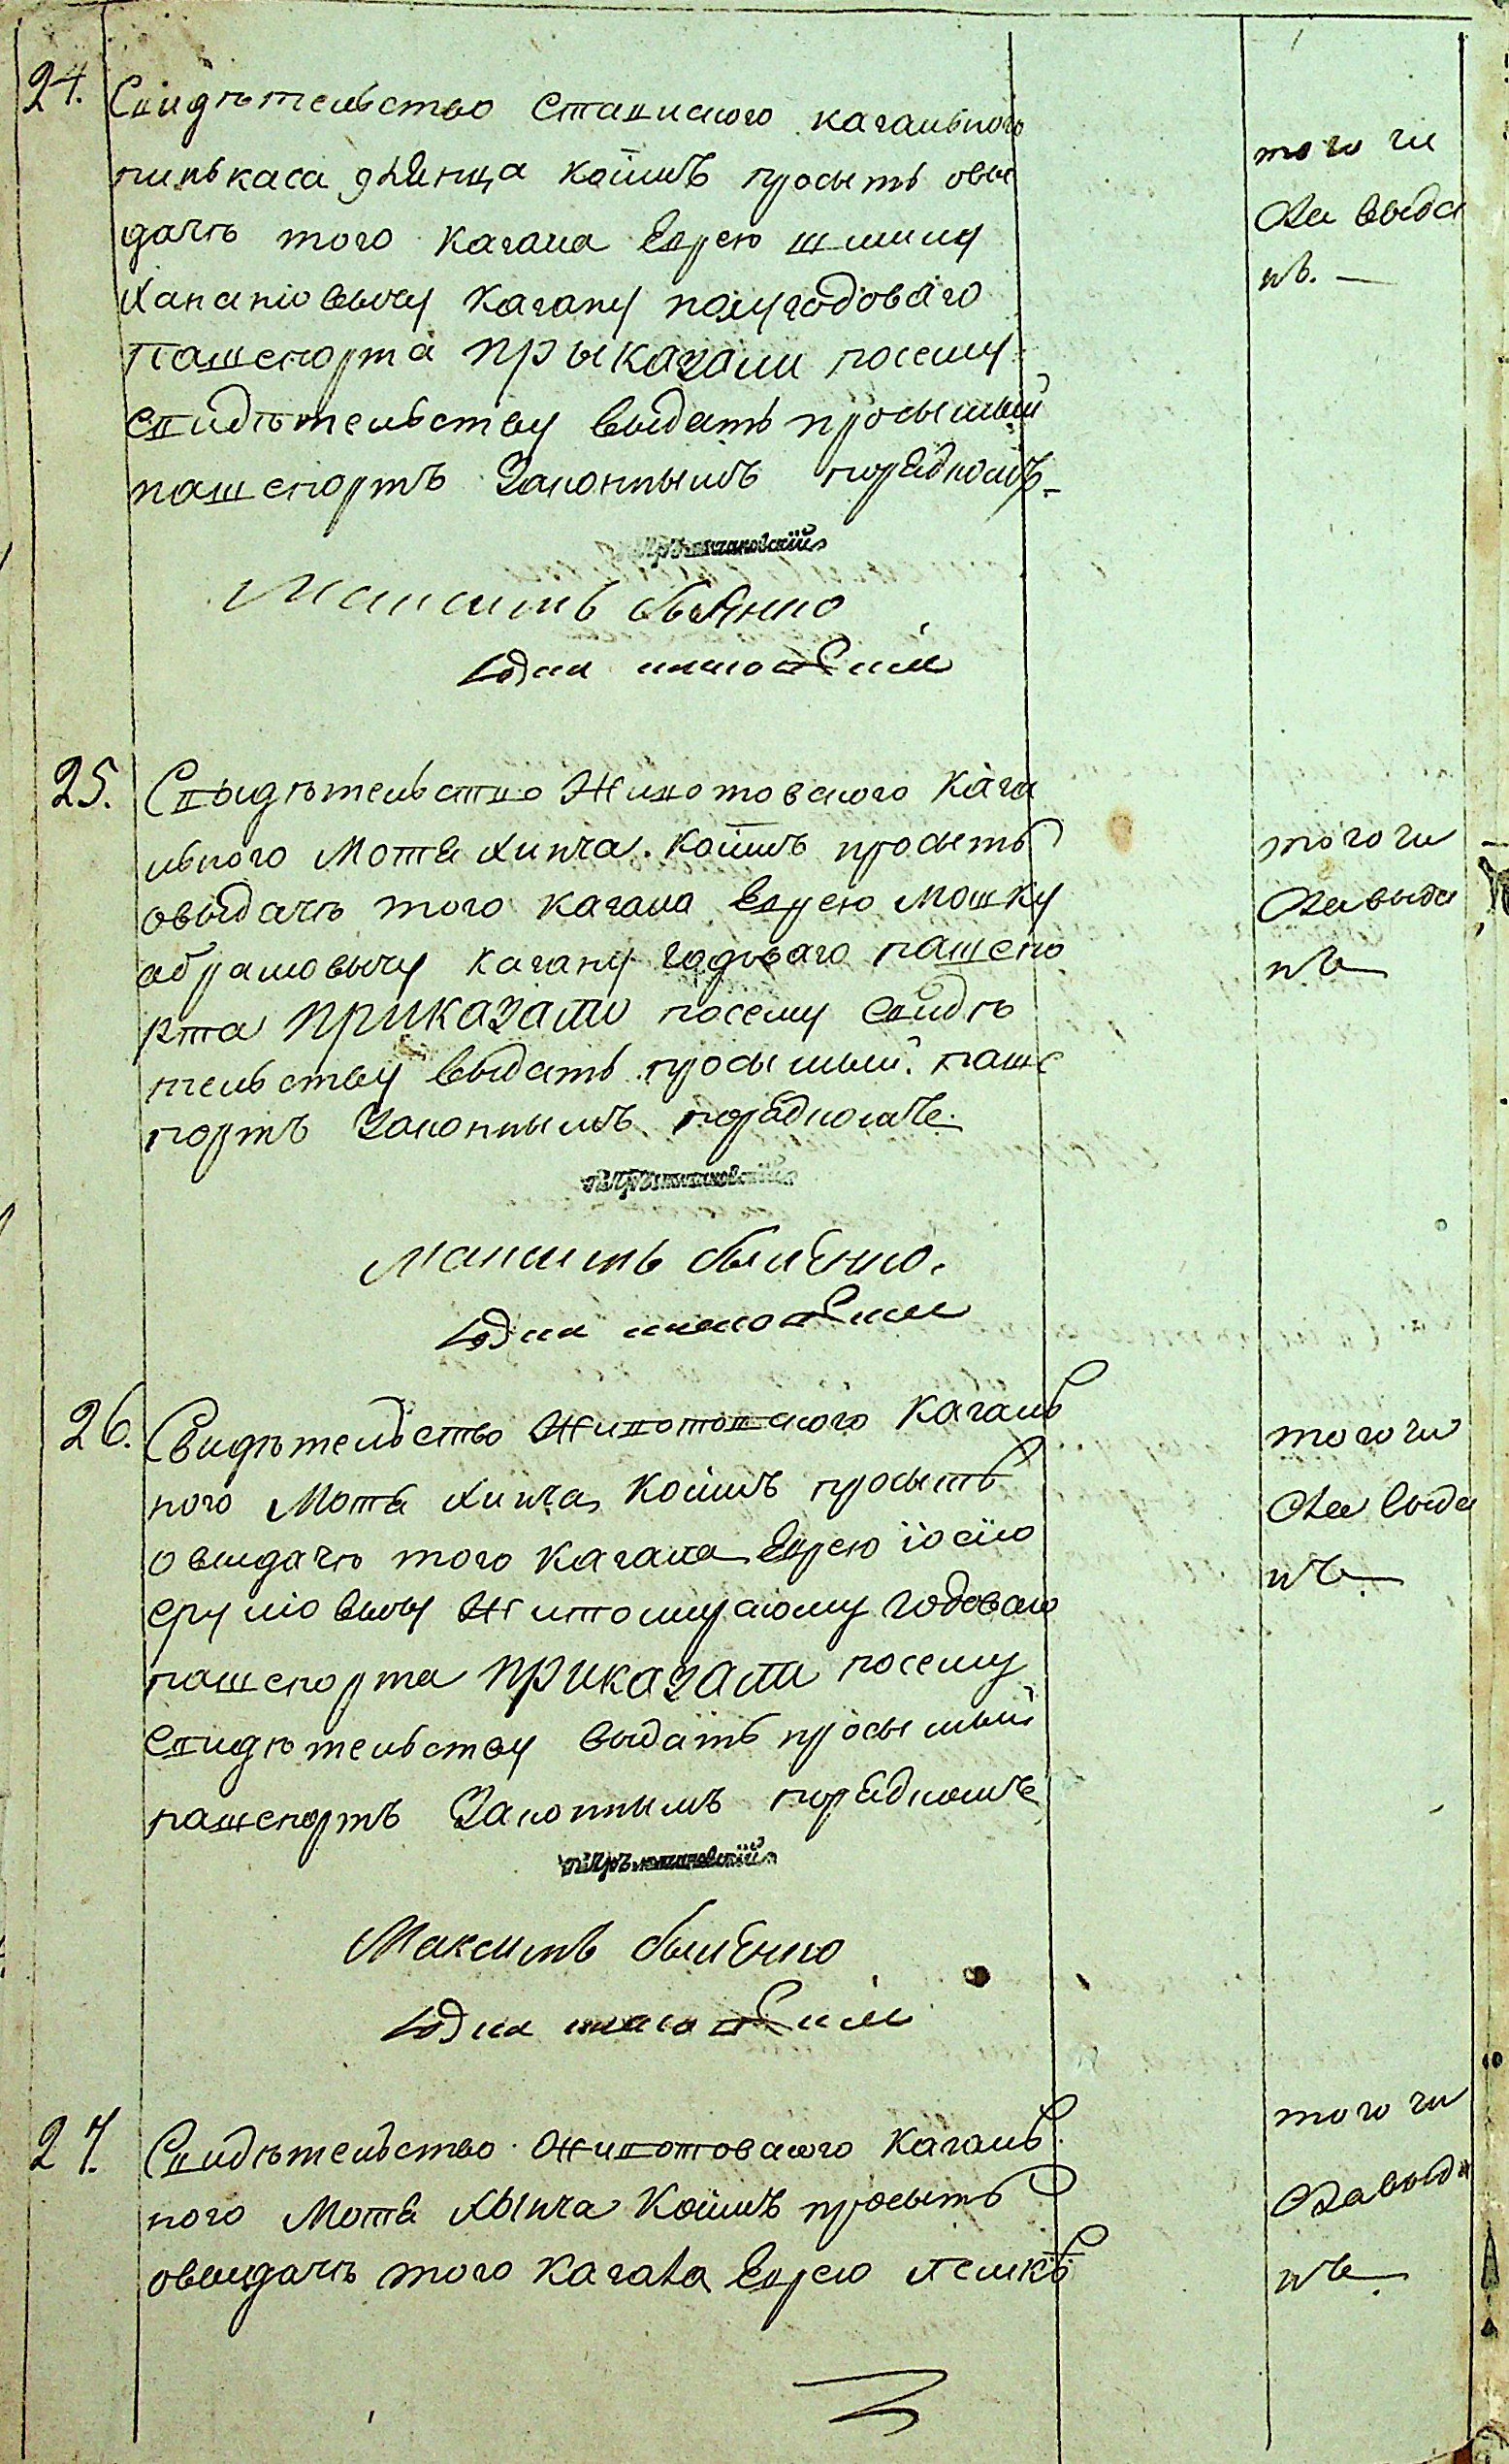 24.
Свидѣтельство Ставиского кагального
пинькаса доянца коимъ просыть овы
дачѣ того кагала Еврею шмилу
Хананіовычу Кагану полугодоваго
Пашепорта Прыказали посему
свидѣтельству выдать просымый
пашепортъ Законнымъ порядкомъ
того чи
сла выда
нъ. —
25.
Свыдѣтельство Животовского Кага
льного Мотя Хинча. коимъ просыть
овыдачѣ того кагала Еврею Мошку
абрамовычу кагану годоваго пашепо
рта Приказали посему свидѣ
тельству выдать просымый паше
портъ Законнымъ порядкомъ.
того чи
сла выда
нъ
26.
Свидѣтельство Животовского Кагаль
ного Мотя Хинча, Коимъ просыть
овыдачѣ того Кагала Еврею іосію
сруліовычу Житомирскому годоваго
пашепорта Приказали посему
свидѣтельству выдать просымый
пашепортъ Законнымъ порядкомъ
Максимъ
того чи
сла выда
нъ
27.
Свидѣтельство Животовского Кагаль
ного Мотя Хынча Коимъ просыть
овыдачѣ того Кагала Еврею лемкѣ
того чи
сла выда
нъ